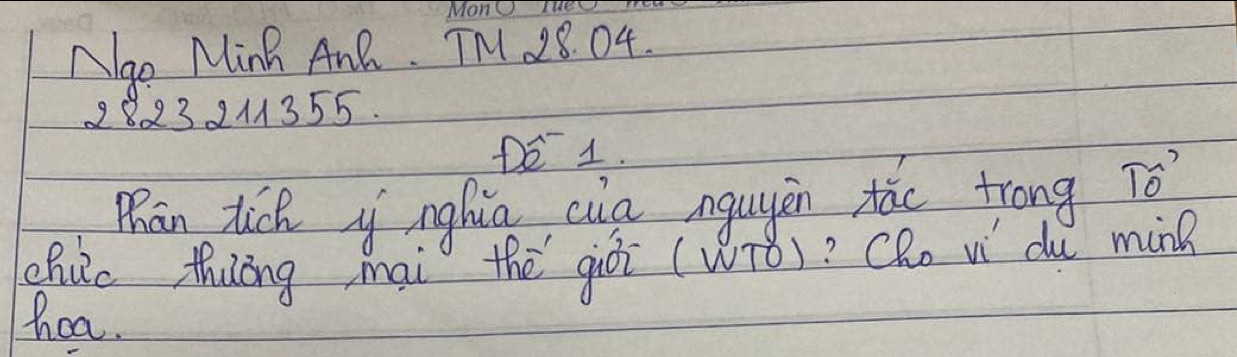 Mon Tue Wed
Ngọ Minh Anh. TM 28.04.
2823211355.
Đề 1.
Phân tích ý nghĩa của nguyên tắc trong Tổ
chức thương mại thế giới (WTO)? Cho ví dụ minh
họa.